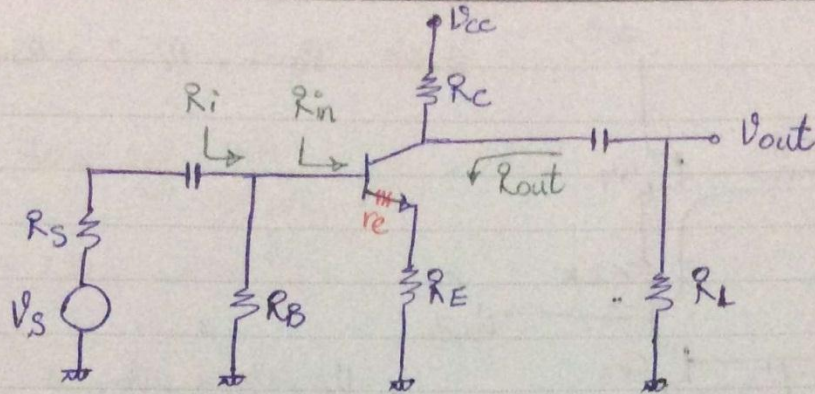 Vcc
Rc
Ri
Rin
Vout
Rout
re
Rs
RE
RL
RB
Vs